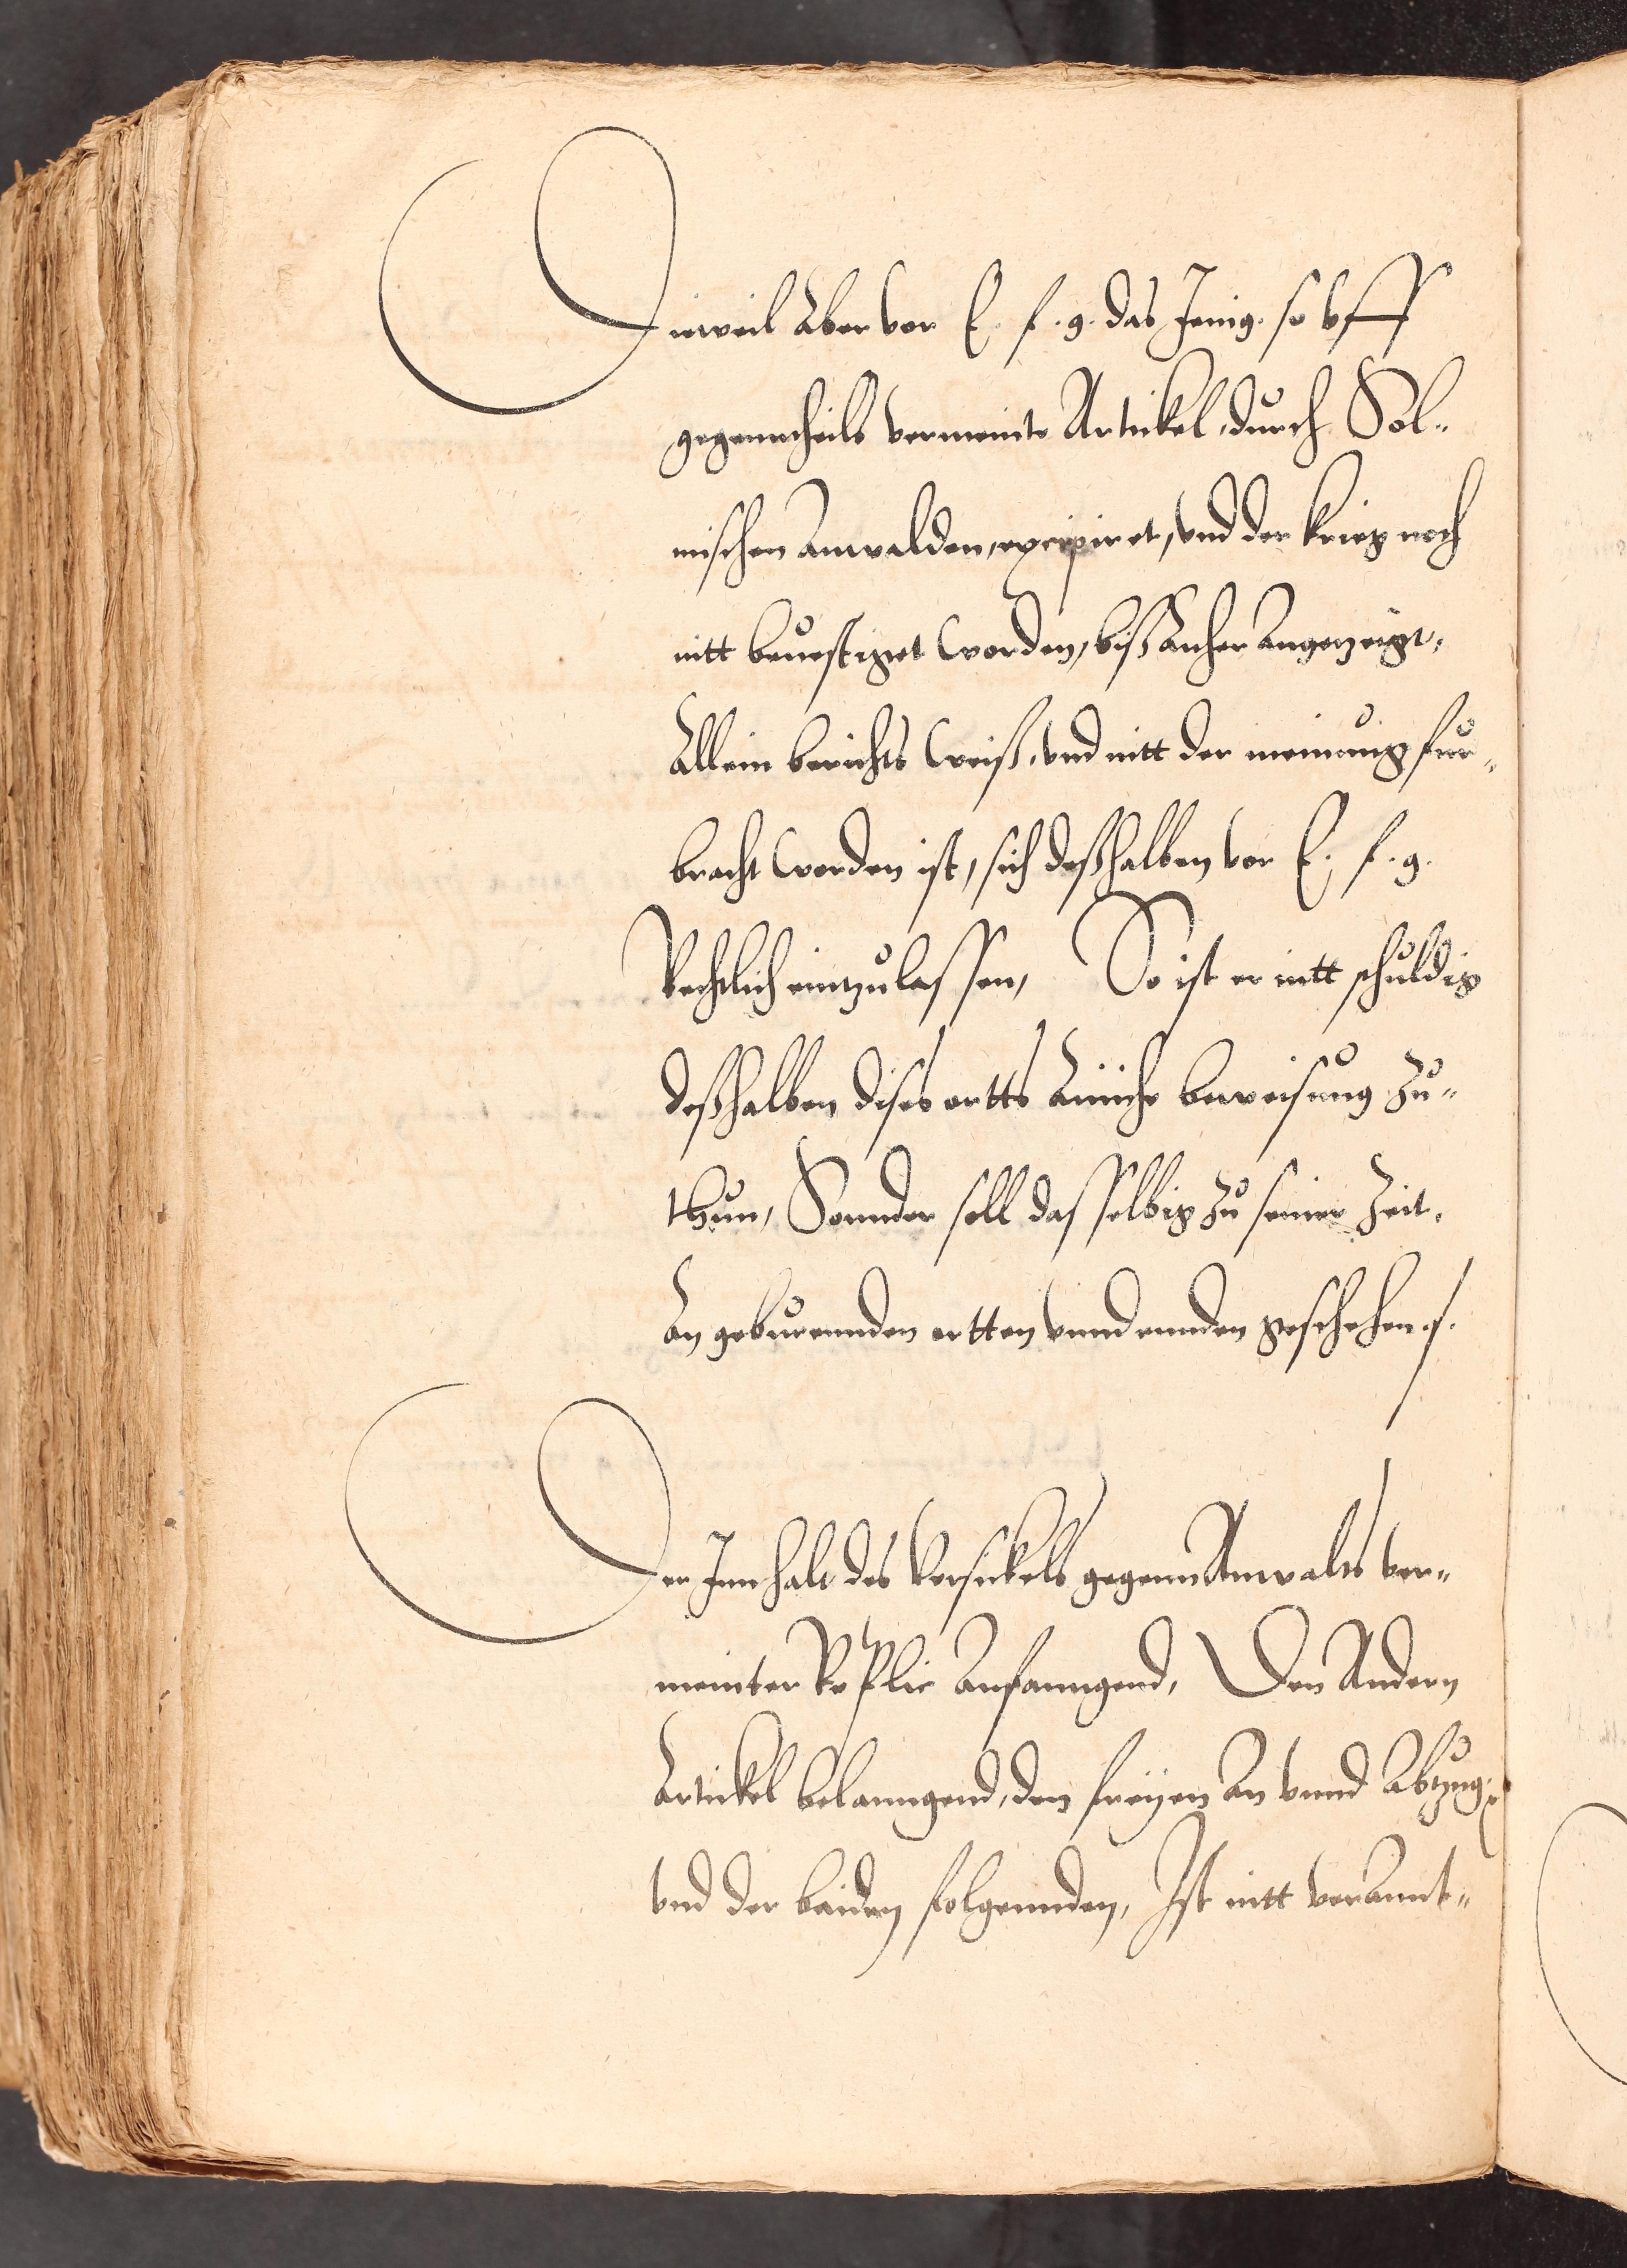 Dieweil Aber vor E. f. g. das Jenig. so vff
gegenntheils vermeinte Artickel, durch Sol„
mischen Anwalden, excipiret, vnd der krieg noch
nitt beuestiget worden, biß Anher Angezeigt,
Allein berichts weiß, vnd nitt der meinung fur„
bracht worden ist, sich deßhalben vor E. f. g.
Rechtlich eintzulassen, So ist er nitt schuldig
deßhalben dises ortts Ainiche beweisung zu„
thun, Sonnder soll dasselbig zu seiner Zeit,
An geburennden ortten vnnd ennden geschehen.
Der Innhalt des Versickels gegenn Anwalts ver„
meinter Replic Anfanngend, Den Andern
Artickel belanngend, den freyen An vnnd Abzug,
vnd der beiden folgennden, Ist nitt verannt„